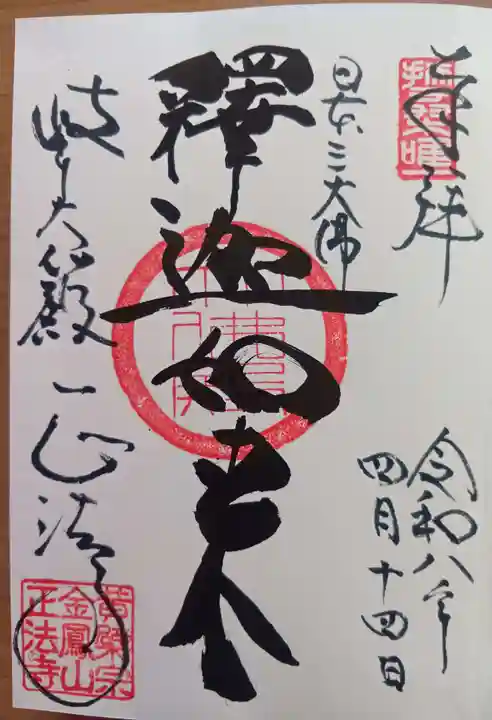 奉拝
令和八年
四月十四日
日本三大佛
釋迦如来
岐阜大仏殿 正法寺
黄檗宗
金鳳山
正法寺